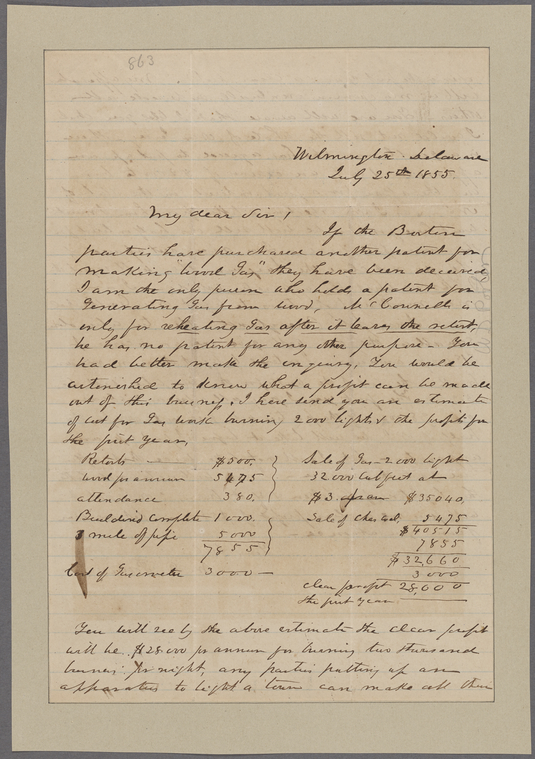 863
Wilmington Delaware
July 25th 1855
My dear Sir!
If the Boston
parties have purchased another patent for
making "Wood Gas," they have been deceived
I am the only person who holds a patent for
Generating Gas from wood, McConnell's is
only for reheating Gas after it leaves the retort,
he has no patent for any other purpose - You
had better make the inquiry. You would be
astonished to know what a profit can be made
out of this business. I here send you an estimate
of cost for Gas work burning 2000 lights & the profits for
the first year,
Retorts $500.
wood per annum 5475
attendance 380.
Buildings complete 1000.
mile of pipe 5000
7855
Cost of Gasometer 3000 -
Sale of Gas 2000 light
32000 cubic feet at
$3. $35040.
Sale of charcoal, 5475
$40515
7855
$32,660
3000
clear profit 28,000
the first year
You will see by the above estimate the clear profit
will be $28.000 per annum for burning two thousand
burners per night, any parties putting up an
apparatus to light a town can make all their